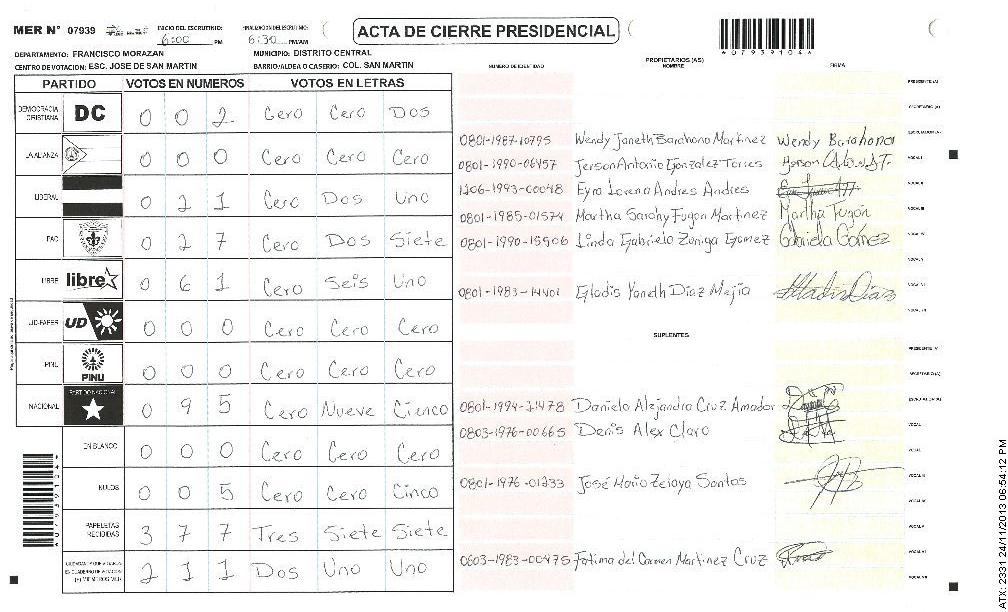 MER N° 07939 INICIO DEL ESCRUTINIO: 6:00 PM FINALIZACION DEL ESCRUTINIO: 6:30 PM/AM ACTA DE CIERRE PRESIDENCIAL
*07939104*
DEPARTAMENTO: FRANCISCO MORAZAN MUNICIPIO: DISTRITO CENTRAL
CENTRO DE VOTACION: ESC. JOSE DE SAN MARTIN BARRIO/ALDEA O CASERIO: COL. SAN MARTIN
PARTIDO VOTOS EN NUMEROS VOTOS EN LETRAS
DEMOCRACIA CRISTIANA DC 0 0 2 Cero Cero Dos
LA ALIANZA 0 0 0 Cero Cero Cero
LIBERAL 0 2 1 Cero Dos Uno
PAC 0 2 7 Cero Dos Siete
LIBRE libre 0 6 1 Cero Seis Uno
UD-FAPER UD 0 0 0 Cero Cero Cero
PINU PINU 0 0 0 Cero Cero Cero
NACIONAL PARTIDO NACIONAL 0 9 5 Cero Nueve Cienco
EN BLANCO 0 0 0 Cero Cero Cero
NULOS 0 0 5 Cero Cero Cinco
PAPELETAS RECIBIDAS 3 7 7 Tres Siete Siete
2 1 1 Dos Uno Uno
NUMERO DE IDENTIDAD PROPIETARIOS (AS) NOMBRE FIRMA
PRESIDENTE (A)
SECRETARIO (A)
0801-1987-10795 Wendy Janeth Barahona Martinez Wendy Barahona ESCRUTADOR (A)
0801-1990-06457 Jerson Antonio Gonzalez Torres VOCAL I
1206-1993-00048 Eyra Lorena Andres Andres VOCAL II
0801-1985-01574 Martha Sarahy Fugon Martinez Martha Fugón VOCAL III
0801-1990-15906 Linda Gabriela Zuniga Gomez Gabriela Gómez VOCAL IV
VOCAL V
0801-1983-14401 Gladis Yaneth Diaz Mejia Gladis Diaz VOCAL VI
VOCAL VII
SUPLENTES
PRESIDENTE (A)
SECRETARIO (A)
0801-1994-21478 Daniela Alejandra Cruz Amador ESCRUTADOR (A)
0803-1976-00665 Denis Alex Claro VOCAL I
VOCAL II
0801-1976-01233 José Mario Zelaya Santos VOCAL III
VOCAL IV
VOCAL V
0603-1983-00475 Fatima del Carmen Martinez Cruz VOCAL VI
VOCAL VII
*07939104*
ATX: 2331 24/11/2013 06:54:12 PM